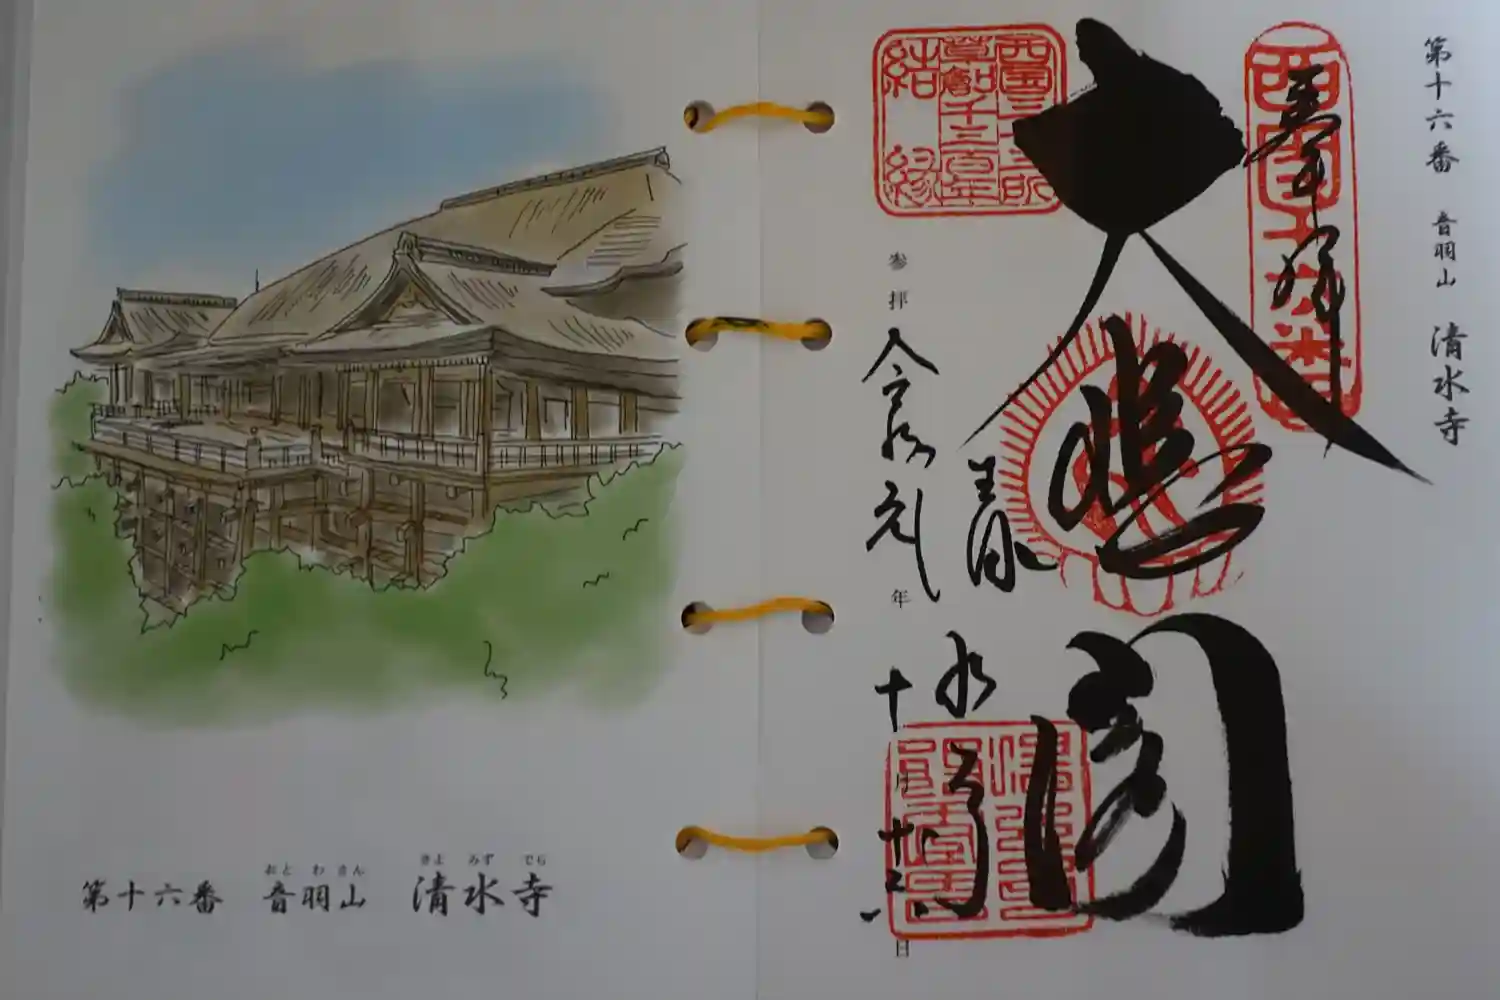 第十六番 音羽山 清水寺
西国十六番
奉拝
大悲閣
西国三十三所
草創千三百年
結縁
清水寺
参拝 令和元年 十月 日
第十六番 音羽山 清水寺
おと わ さん きよ みず でら